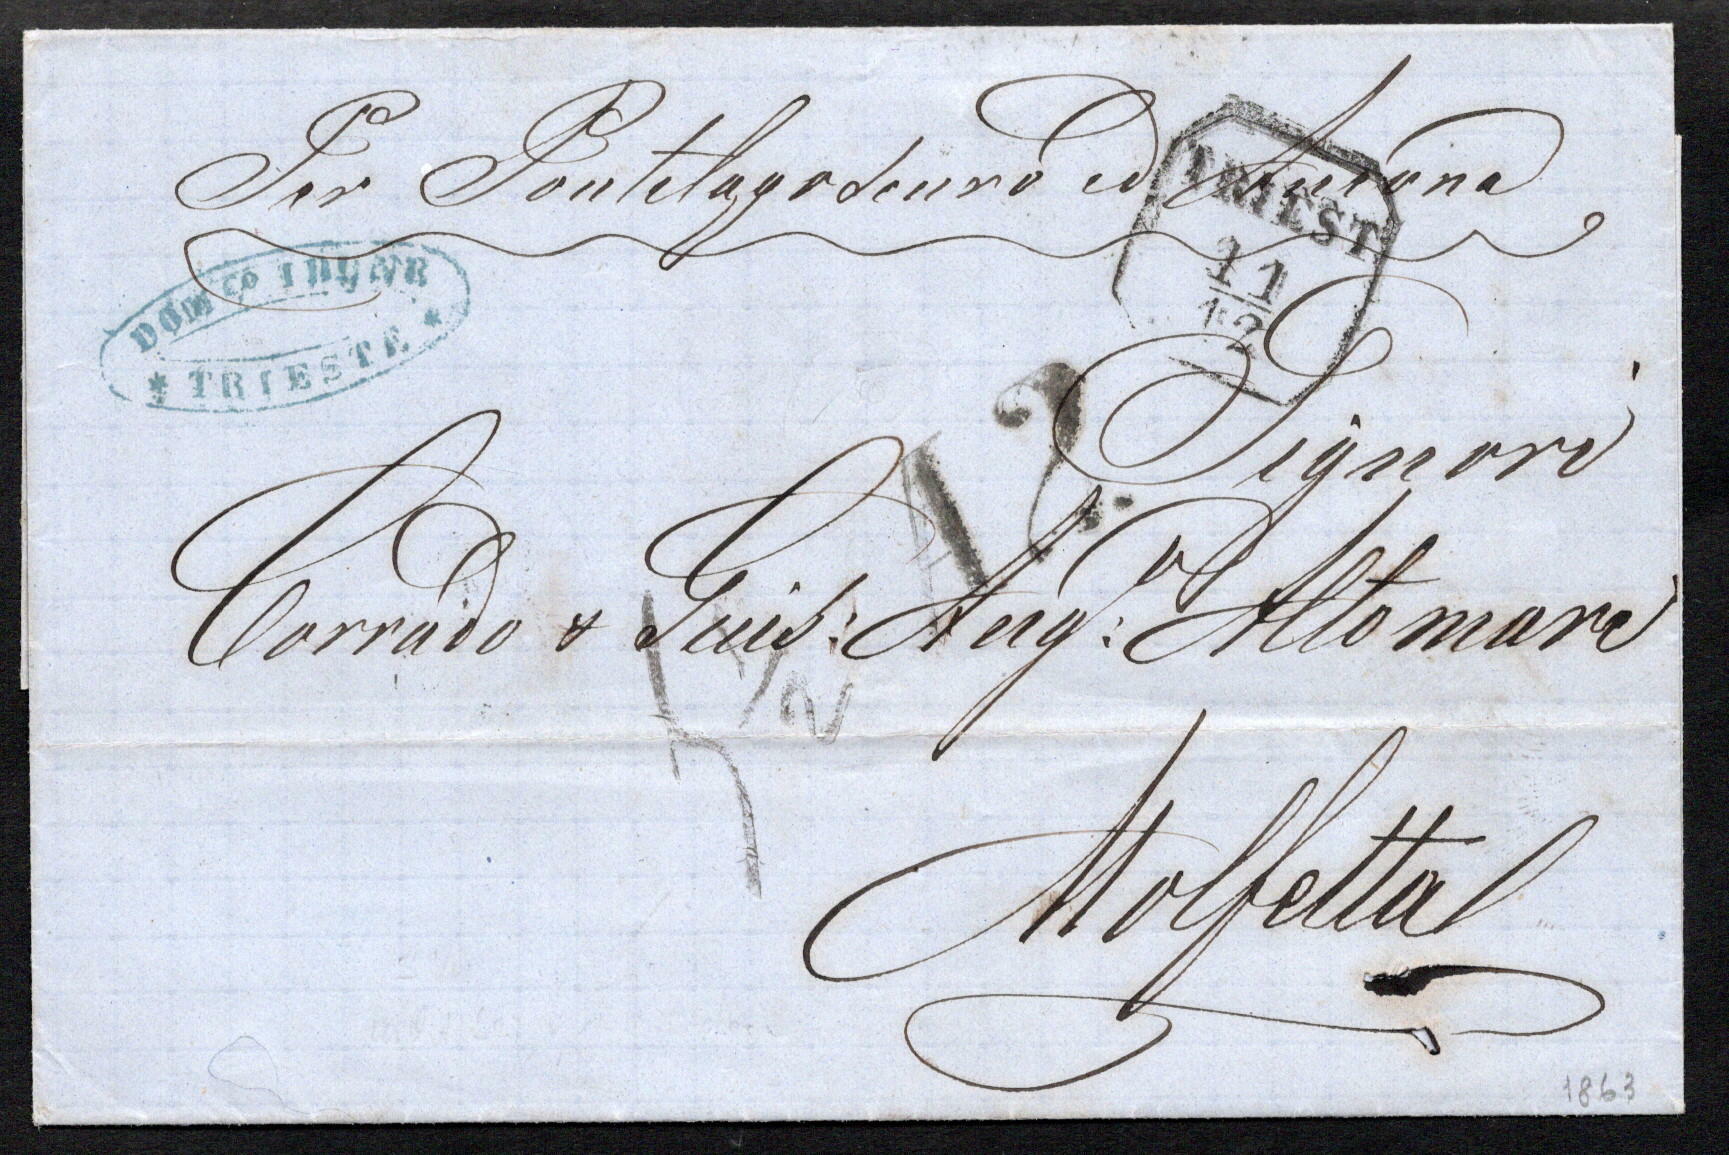 Per Pontelagoscuro ed Ancona
TRIEST
11
12
DOMco THUNE
* TRIESTE *
Signori
12.
Corrado & Guis: Aug: Altomare
Molfetta
1863